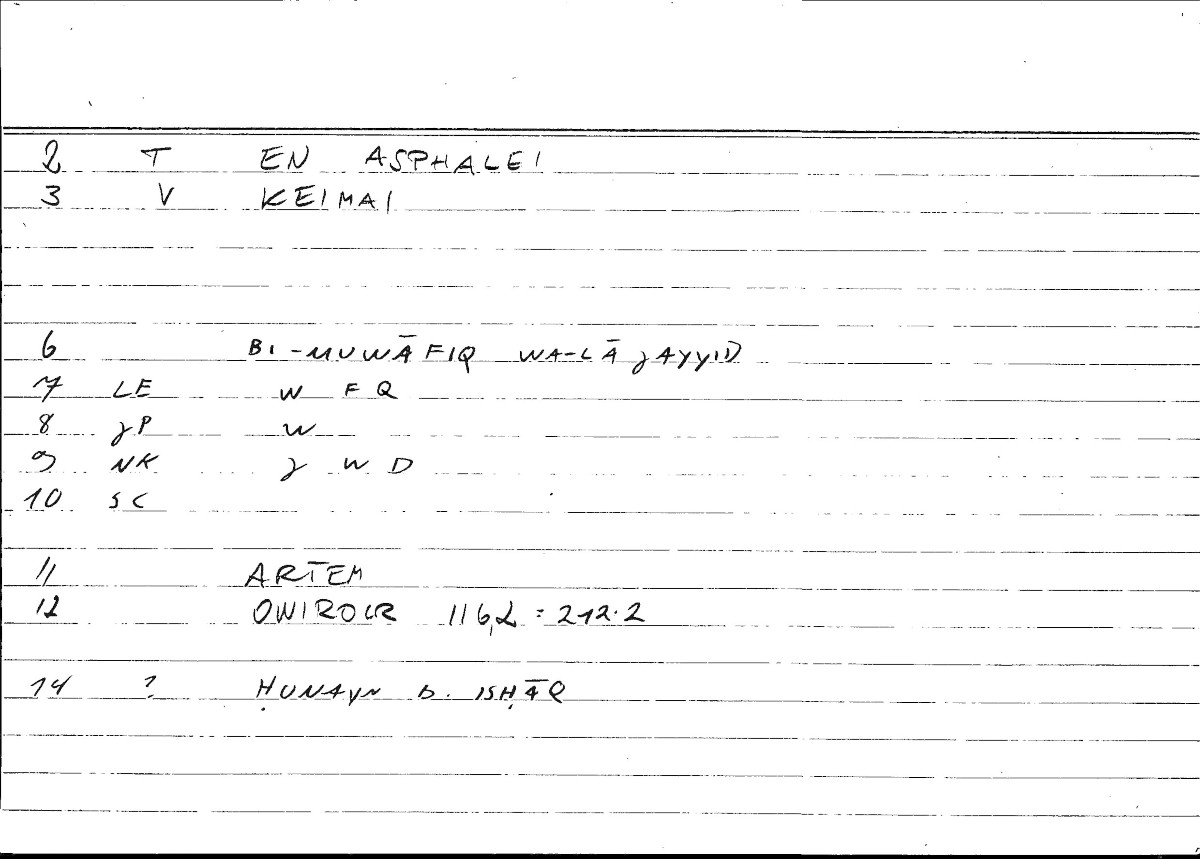 2 T EN ASPHALEI
3 V KEIMAI
6 BI-MUWĀFIQ WA-LĀ ǧAYYID
7 LE W F Q
8 ǧP W
9 NK ǧ W D
10 SC
11 ARTEM
12 ONIROCR 116,2 = 212.2
14 ? ḤUNAYN B. ISḤĀQ